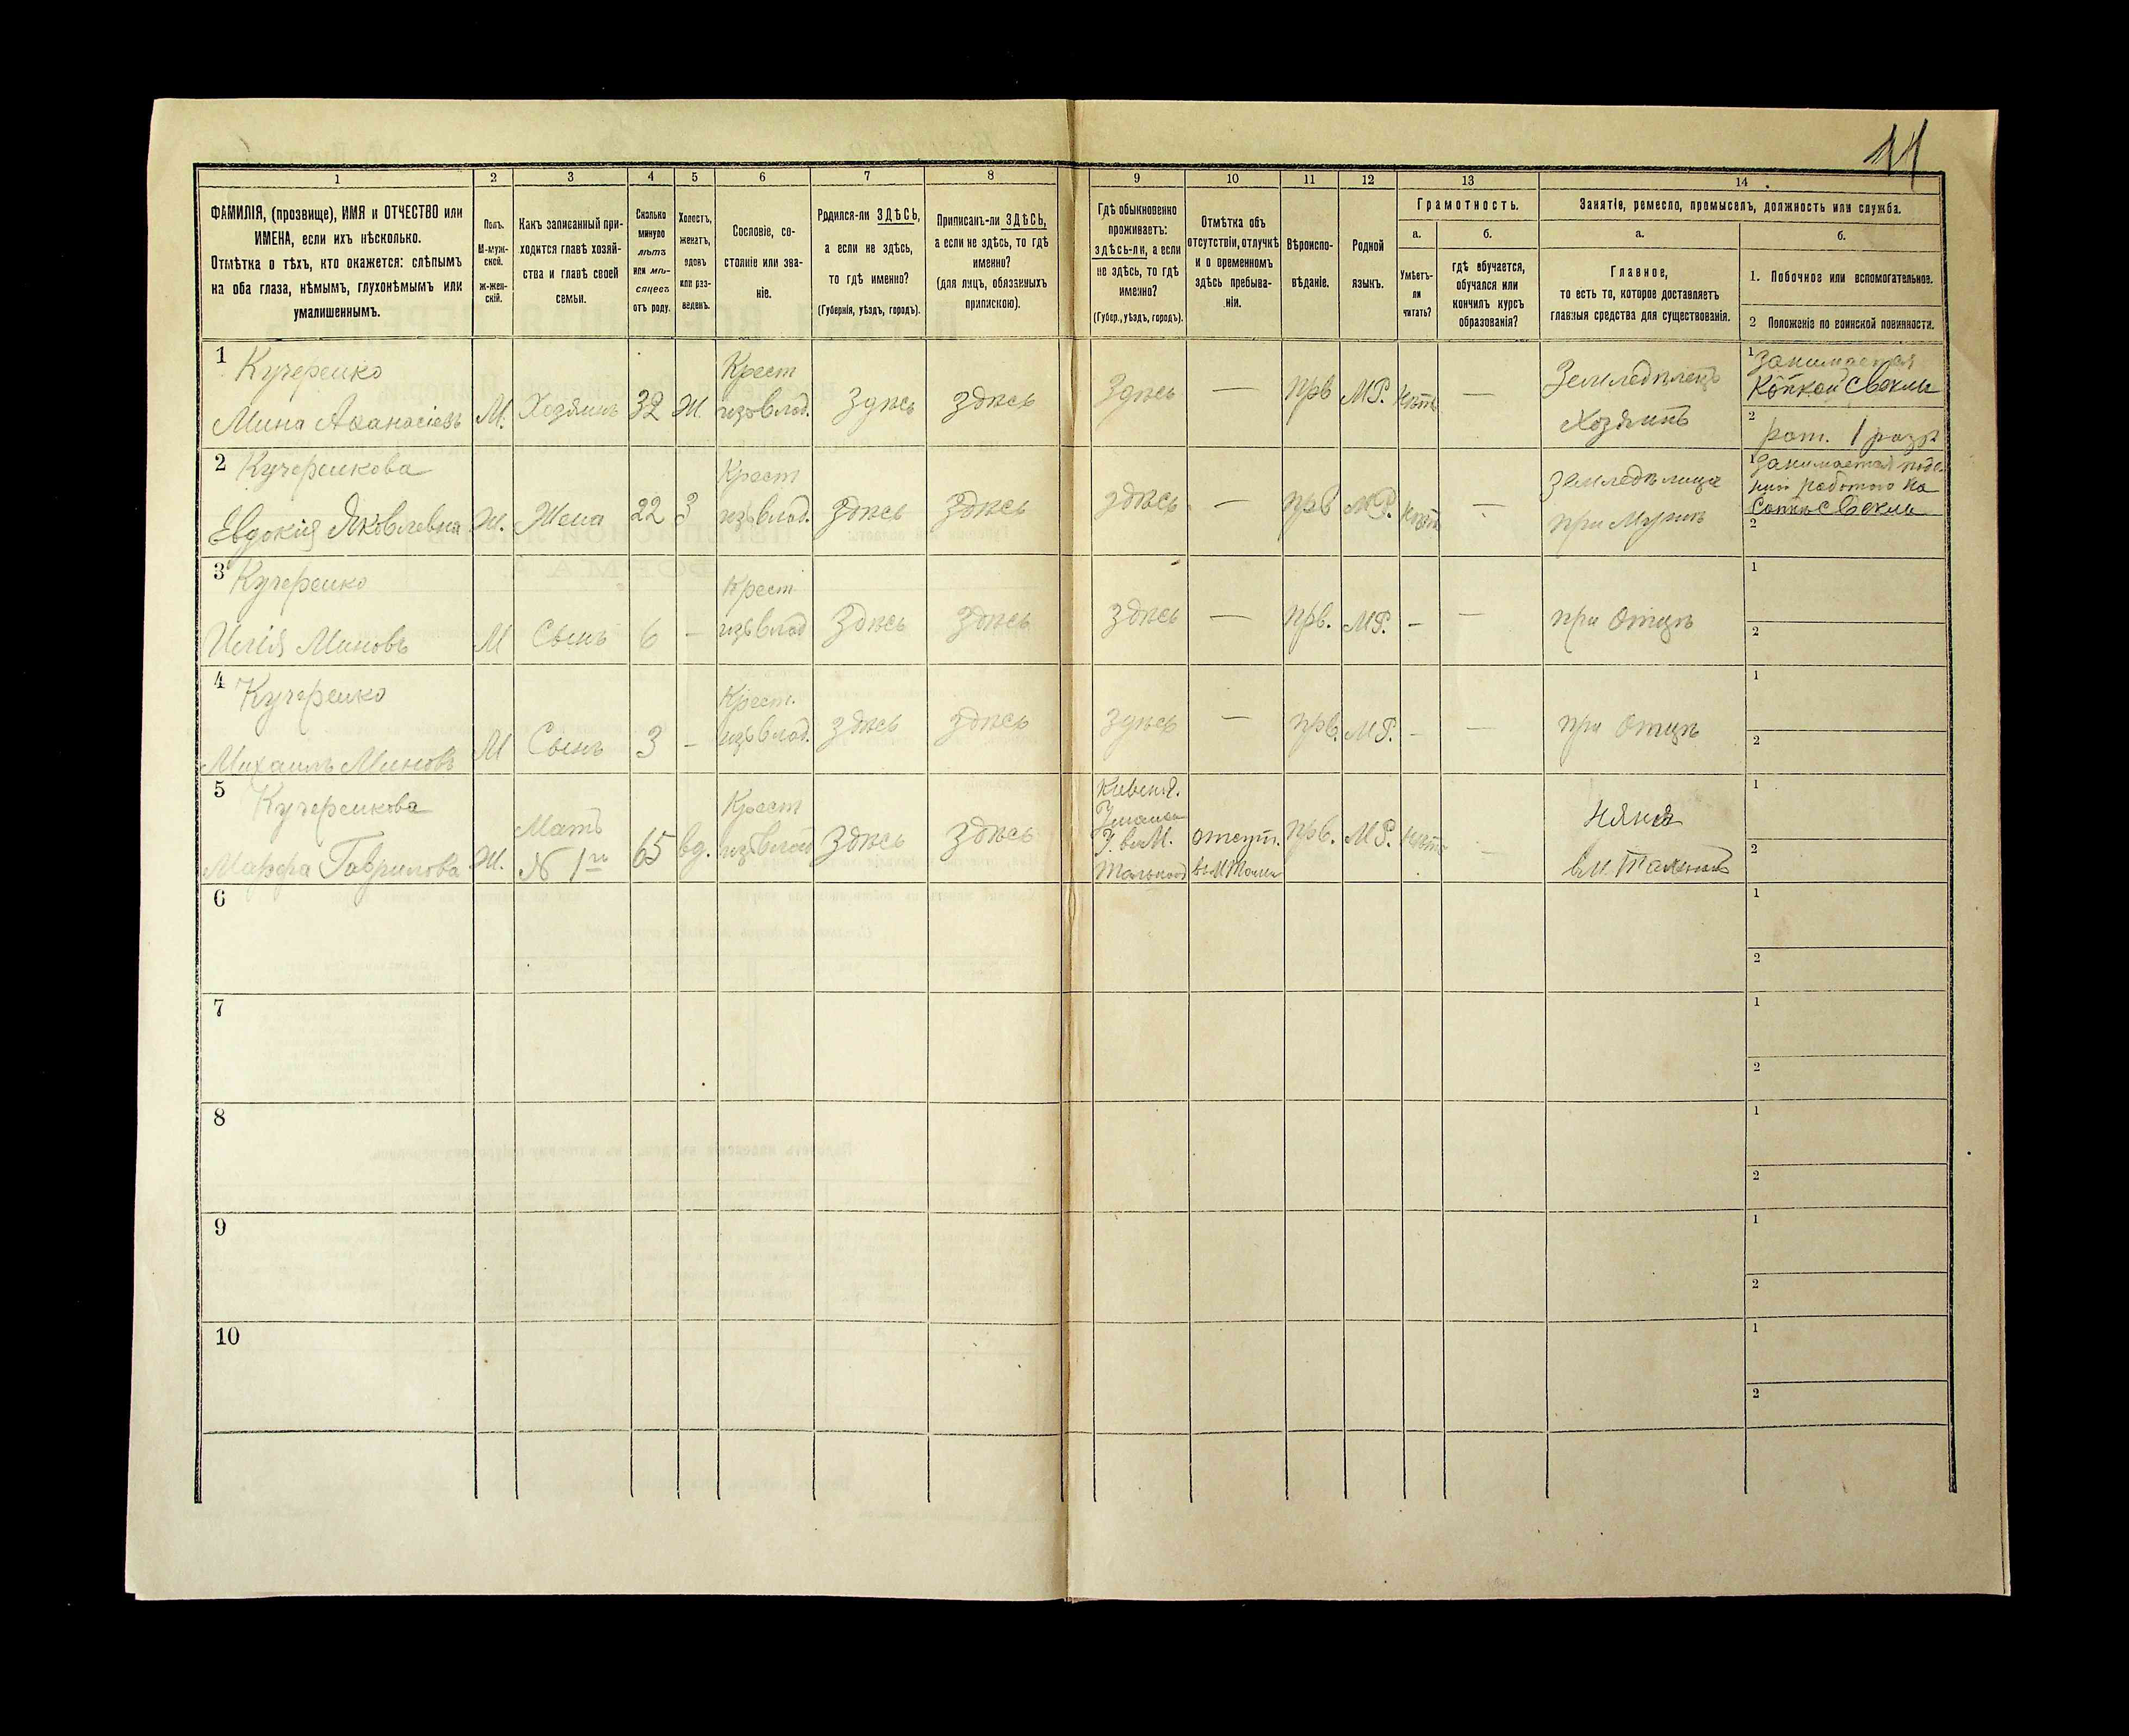 11
1 2 3 4 5 6 7 8 9 10 11 12 13 14
ФАМИЛІЯ, (прозвище), ИМЯ и ОТЧЕСТВО или
ИМЕНА, если ихъ нѣсколько.
Отмѣтка о тѣхъ, кто окажется: слѣпымъ
на оба глаза, нѣмымъ, глухонѣмымъ или
умалишеннымъ.
Полъ.
М-муж-
ской.
Ж-жен-
скій.
Какъ записанный при-
ходится главѣ хозяй-
ства и главѣ своей
семьи.
Сколько
минуло
лѣтъ
или мѣ-
сяцевъ
отъ роду.
Холостъ,
женатъ,
вдовъ
или раз-
веденъ.
Сословіе, со-
стояніе или зва-
ніе.
Родился-ли ЗДѢСЬ,
а если не здѣсь,
то гдѣ именно?
(Губернія, уѣздъ, городъ).
Приписанъ-ли ЗДѢСЬ,
а если не здѣсь, то гдѣ
именно?
(для лицъ, обязанныхъ
припискою).
Гдѣ обыкновенно
проживаетъ:
здѣсь-ли, а если
не здѣсь, то гдѣ
именно?
(Губер., уѣздъ, городъ).
Отмѣтка объ
отсутствіи, отлучкѣ
и о временномъ
здѣсь пребыва-
ніи.
Вѣроиспо-
вѣданіе.
Родной
языкъ.
Грамотность.
а.
Умѣетъ-
ли
читать?
б.
гдѣ обучается,
обучался или
кончилъ курсъ
образованія?
Занятіе, ремесло, промыселъ, должность или служба.
а.
Главное,
то есть то, которое доставляетъ
главныя средства для существованія.
б.
1. Побочное или вспомогательное.
2 Положеніе по воинской повинности.
1
Кучеренко
Мина Аѳанасіевъ
М.
Хозяинъ
32
Ж.
Крест
изъ влад.
Здѣсь
Здѣсь
Здѣсь
—
прв
МР.
нѣтъ
—
Земледѣлецъ
Хозяинъ
1 Занимается
Копкой Свеклы
2 рат. 1 разр
2
Кучеренкова
Евдокія Яковлевна
Ж.
Жена
22
З
Крест
изъ влад.
Здѣсь
Здѣсь
Здѣсь
—
прв
МР.
нѣтъ
—
Земледѣлица
при Мужѣ
1 Занимается
работою на
Свеклы
2
3
Кучеренко
Илія Миновъ
М
Сынъ
6
—
Крест
изъ влад
Здѣсь
Здѣсь
Здѣсь
—
прв.
МР.
-
—
при Отцѣ
1
2
4
Кучеренко
Михаилъ Миновъ
М
Сынъ
3
-
Крест.
изъ влад.
Здѣсь
Здѣсь
Здѣсь
—
прв.
МР.
-
—
при Отцѣ
1
2
5
Кучеренкова
Марфа Гаврилова
Ж.
Мать
№ 1го
65
вд.
Крест
изъ влад
Здѣсь
Здѣсь
Киевск.
У. въ М.
отсут.
прв.
МР.
нѣтъ
—
Няня
въ м.
1
2
6
1
2
7
1
2
8
1
2
9
1
2
10
1
2